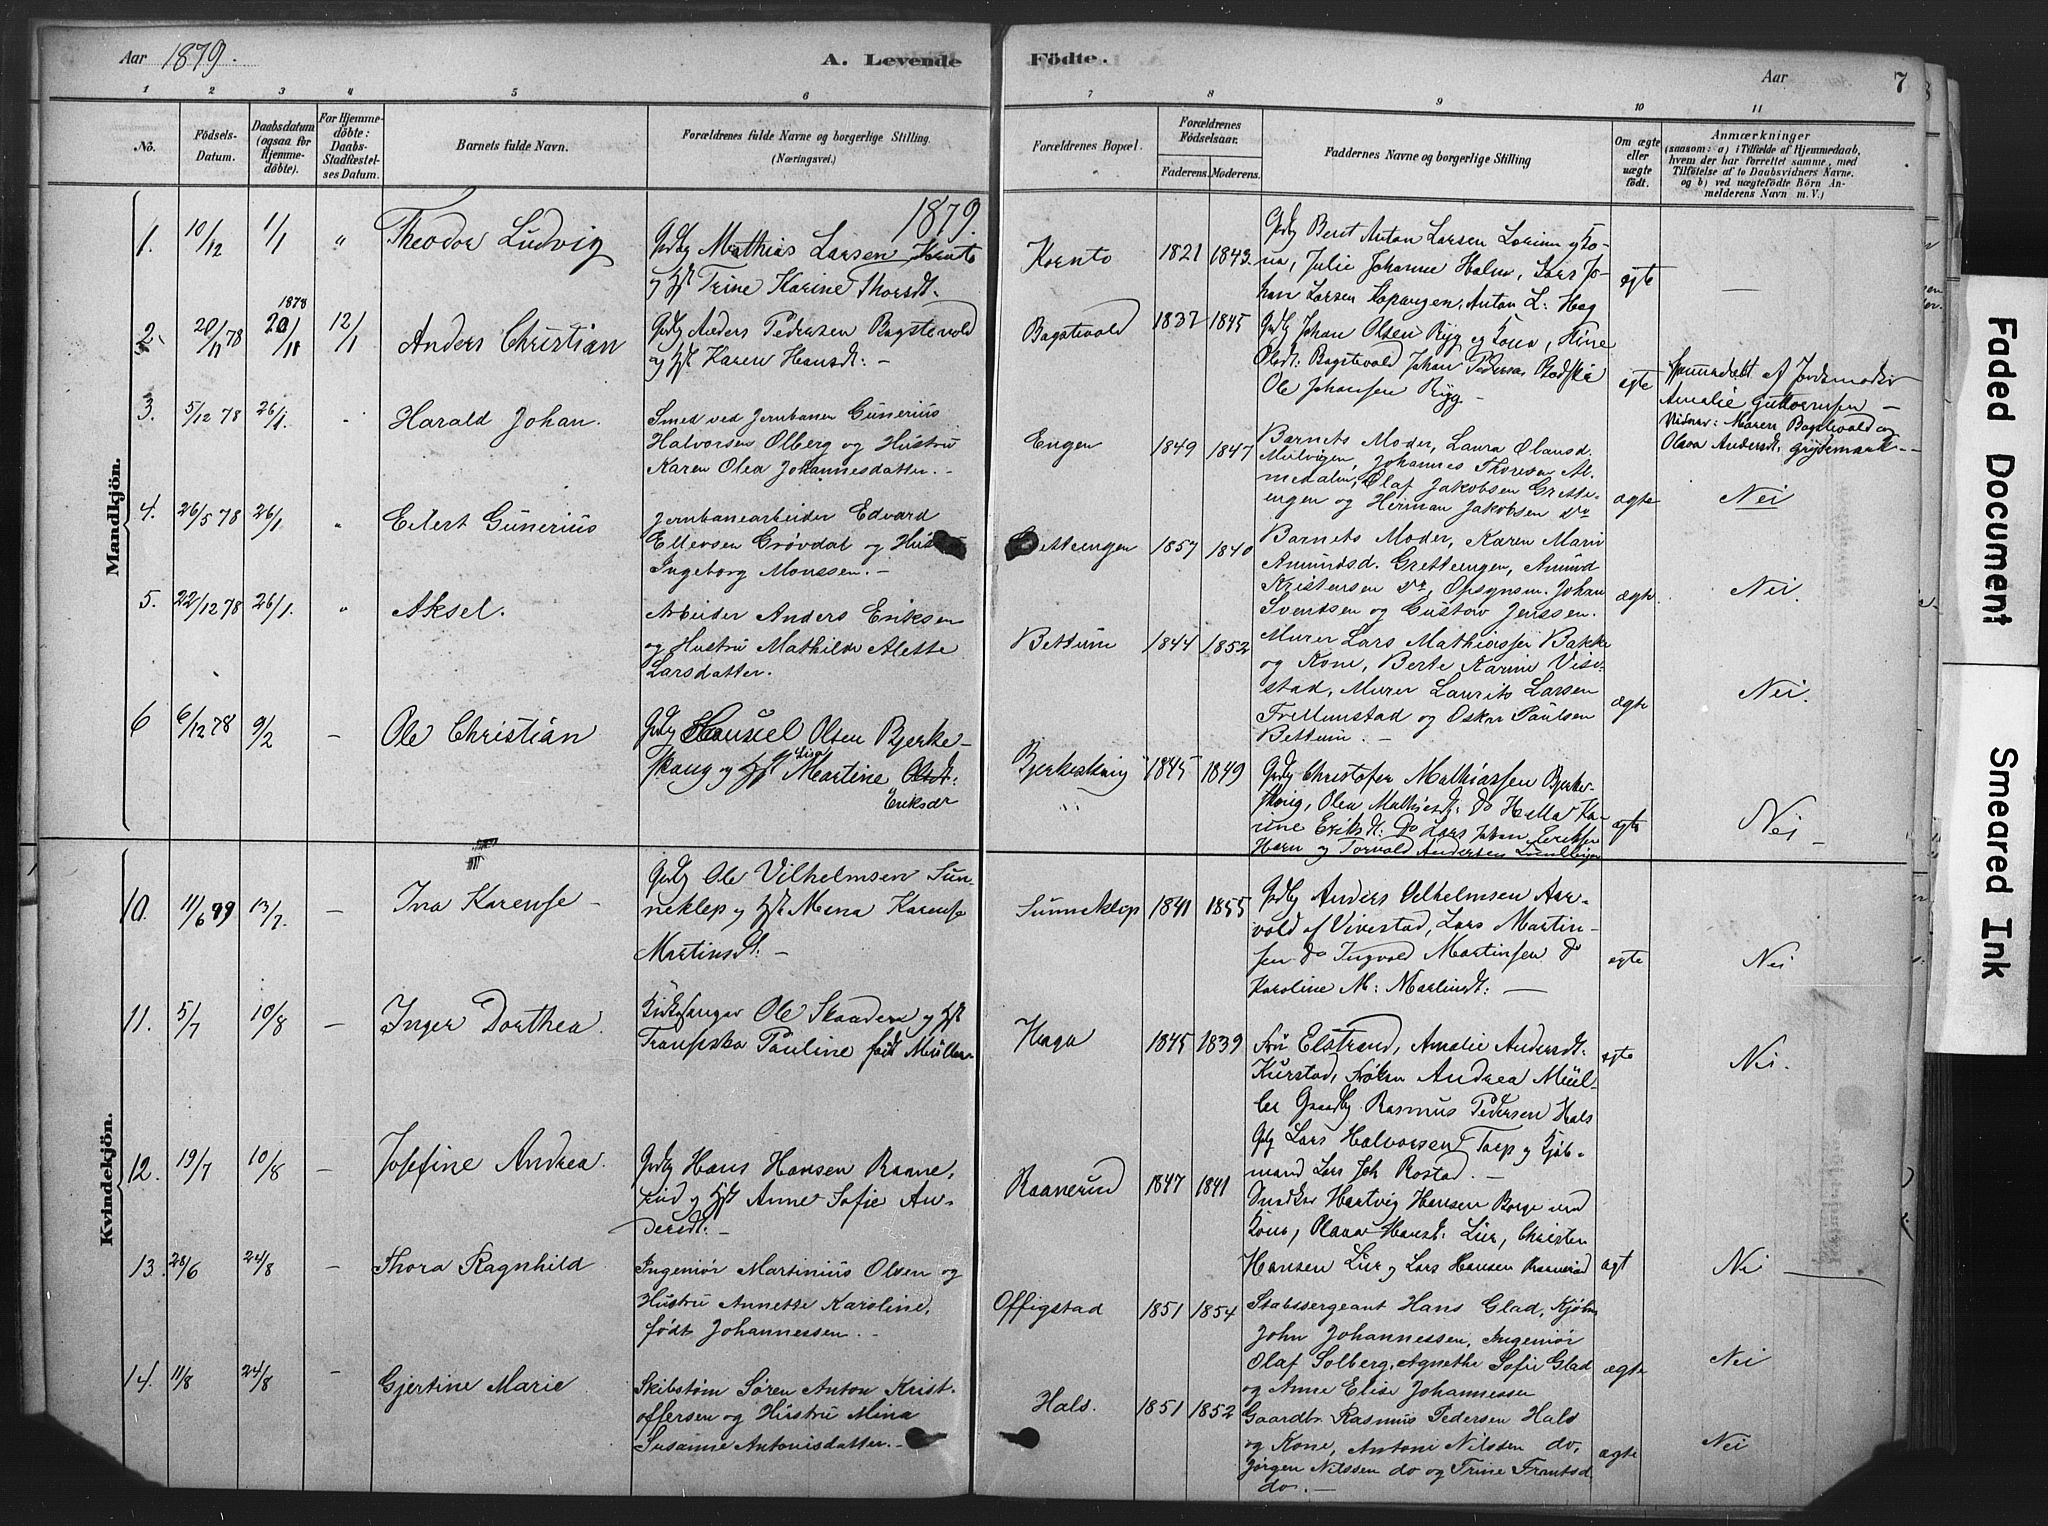 Aar 1879.
A. Levende Födte.
Aar
7
1 2 3 4 5 6 7 8 9 10 11
No.
Födsels-Datum.
Daabsdatum (ogsaa for Hjemmedöbte).
For Hjemmedöbte: Daabs-Stadfæstelses Datum.
Barnets fulde Navn.
Forældrenes fulde Navne og borgerlige Stilling. (Næringsvei.)
Forældrenes Bopæl.
Forældrenes Födselsaar.
Faderens. Moderens.
Faddernes Navne og borgerlige Stilling
Om ægte eller uægte födt.
Anmærkninger
(saasom: a) i Tilfælde af Hjemmedaab,
hvem der har forrettet samme, med
Tilföielse af to Daabsvidners Navne.
og b) ved uægtefödte Börn Anmelderens Navn m. V.)
Mandkjön.
1879.
1. 10/12 1/1 " Theodor Ludvig
Grdbr Mathias Larsen
og Hst Trine Karine Thorsdt.
Kornto 1821 1843.
Grdbr Berit Anton Larsen og Kona,
Julie Johanne Holm, Lars Johan
Larsen Kopangen, Anton L: Hag
egte —
2. 20/11 78 1878 20/11 12/1 Anders Christian
Grdbr Anders Pedersen Bagstevold
og Hst Karen Hansdt: —
Bagstevold 1837 1845
Grdbr Johan Olsen Ryg og Kona,
Olsdt: Bagstevold Johan Pedersen
Ole Johansen Ryg —
egte
Hjemmedøbt af Jordemoder
Amalie Guttormsen —
Vidner: Maren Bagstevold og
Olava Andersdt. Grydemark —
3. 5/12 78 26/1. " Harald Johan.
Smed ved Jernbanen Gunerius
Halvorsen Olberg og Hustru
Karen Olea Johannesdatter. —
Engen 1849 1847
Barnets Moder, Laura Olausd.
Mulvigen, Johannes Thoresen Almedalen,
Olaf Jakobsen Gretteengen
og Herman Jakobsen do
ægte Nei
4. 26/5 78 26/1 " Eilert Gunerius
Jernbanearbeider Edvard
Ellevsen Grøvdal og
Ingeborg Monssen. —
1857 1840
Barnets Moder, Karen Marie
Amundsd. Gretteengen, Amund
Kristensen do, Opsynsm. Johan
Svendsen og Gustav Jenssen.
ægte. Nei.
5. 22/12 78 26/1. " Aksel.
Arbeider Anders Eriksen
og Hustru Mathilde Alette
Larsdatter.
Bettum 1844 1852
Murer Lars Mathisen Bakke
og Kone, Berte Karine Vivestad,
Murer Laurits Larsen
Frellumstad og Oskar Paulsen
Bettum. —
ægte Nei.
6 6/12 78 9/2 — Ole Christian
Grdbr Olsen Bjerkeskaug
og Hst Lisa Martine Olsdt:
Eriksdr
Bjerkeskaug 1845 1849
Grdbr Christofer Mathiassen Bjerkeskoug,
Olea Mathisdt: do Hella Karine
Eriksdt: do Lars Johan Eriksen
Horn og Torvald Andersen
ægte Nei —
Kvindekjön.
10. 11/6 79 13/7. — Ina Karense —
Grdbr Ole Vilhelmsen Sunneklep
og Hst Mena Karense
Martinsdt: —
Sunneklep 1841 1855
Grdbr Anders Vilhelmsen Aarvold
af Vivestad, Lars Martinsen
do Ingvald Martinsen do
Karoline M: Martinsdt: —
egte Nei
11. 5/7 10/8 — Inger Dorthea.
Kirkesanger Ole Skaaden og Hst
Franziska Pauline født Müller.
Haga 1845 1839
Fru Elstrand, Amalie Andersdt:
Kurstad, Frøken Andrea Müller
Gaardbr Rasmus Pedersen Hals
Grdbr Lars Halvorsen Tarp og Kjøbmand
Lars Joh Rostad. —
egte Nei.
12. 19/7 10/8 — Josefine Andrea.
Grdbr Hans Hansen Raanerud
og Hst Anne Sofie Andersdt: —
Raanerud 1847 1841
Snedker Hartvig Hansen Borge med
Kone, Olava Hansdt: Lier, Christen
Hansen Lier og Lars Hansen Raanerud
ægt Nei
13. 28/6 24/8 — Thora Ragnhild
Ingeniør Martinius Olsen og
Hustru Annette Karoline,
født Johannessen. —
Offigstad 1851 1854
Stabssergeant Hans Glad, Kjøbm
John Johannessen, Ingeniør
Olaf Solberg, Agnethe Sofie Glad
og Anne Elise Johannessen
ægte Nei
14. 11/8 24/8 — Gjertine Marie
Skibstøm Søren Anton Kristoffersen
og Hustru Mina
Susanne Antonisdatter. —
Hals. 1851 1852
Gaardbr. Rasmus Pedersen Hals
og Kone, Antoni Nilssen do,
Jørgen Nilssen do og Trine Frantsd.
do. —
ægte Nei
Faded Document
Smeared Ink